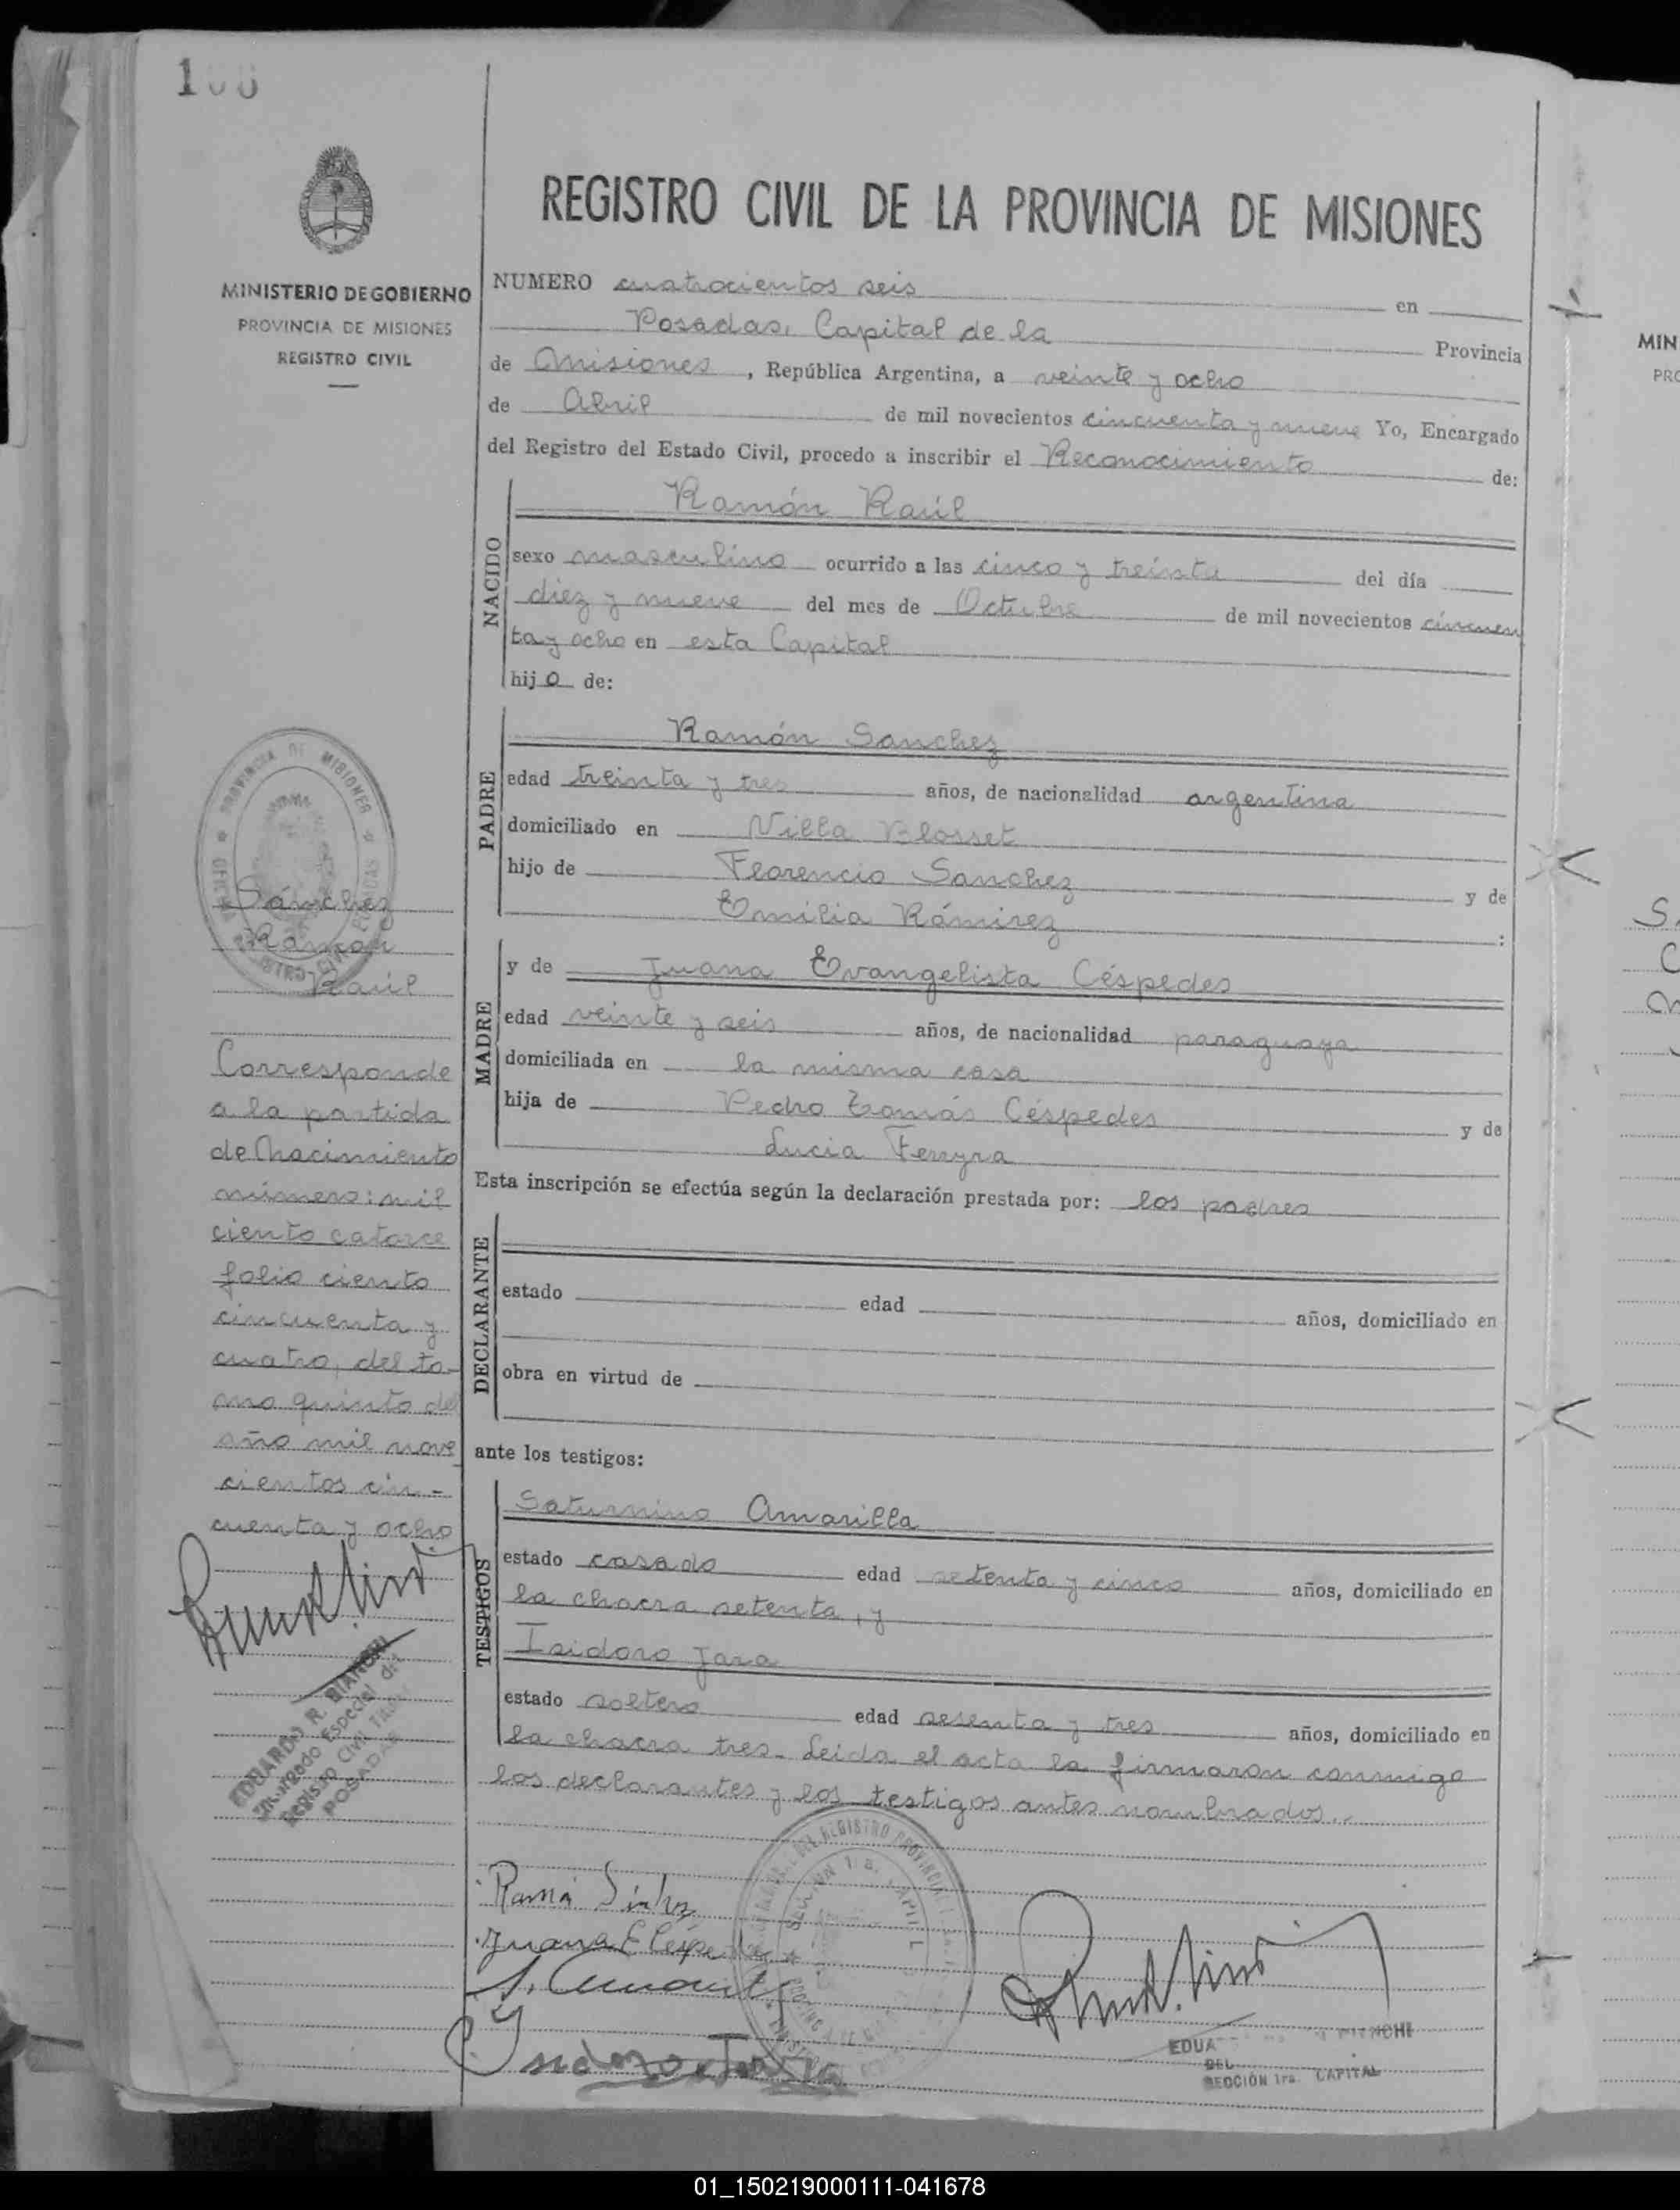 100
REGISTRO CIVIL DE LA PROVINCIA DE MISIONES
MINISTERIO DE GOBIERNO
PROVINCIA DE MISIONES
REGISTRO CIVIL
NUMERO cuatrocientos seis en
Posadas, Capital de la Provincia
de Misiones, República Argentina, a veinte y ocho
de Abril de mil novecientos cincuenta y nueve Yo, Encargado
del Registro del Estado Civil, procedo a inscribir el Reconocimiento de:
NACIDO
Ramón Raúl
sexo masculino ocurrido a las cinco y treinta del día
diez y nueve del mes de Octubre de mil novecientos cincuen
ta y ocho en esta Capital
hijo de:
PADRE
Ramón Sanchez
edad treinta y tres años, de nacionalidad argentina
domiciliado en Villa Blosset
hijo de Florencio Sanchez y de
Emilia Rámirez :
MADRE
y de Juana Evangelista Céspedes
edad veinte y seis años, de nacionalidad paraguaya
domiciliada en la misma casa
hija de Pedro Tomás Céspedes y de
Lucia Ferreyra
Esta inscripción se efectúa según la declaración prestada por: los padres
DECLARANTE
estado edad años, domiciliado en
obra en virtud de
ante los testigos:
TESTIGOS
Saturnino Amarilla
estado casado edad setenta y cinco años, domiciliado en
la chacra setenta, y
Isidoro Jara
estado soltero edad sesenta y tres años, domiciliado en
la chacra tres. Leida el acta la firmaron conmigo
los declarantes y los testigos antes nombrados.-
Sánchez
Ramón
Raúl
Corresponde
a la partida
de Nacimiento
número: mil
ciento catorce
folio ciento
cincuenta y
cuatro, del to-
mo quinto del
año mil nove
cientos cin-
cuenta y ocho
EDUARDO R. BIANCHI
Encargado Especial del
Registro Civil Titular
POSADAS
PROVINCIA DE MISIONES
Juana E Céspedes
DEL REGISTRO PROVINCIAL
SECCIÓN 1ra. CAPITAL
MIN
PRO
01_150219000111-041678